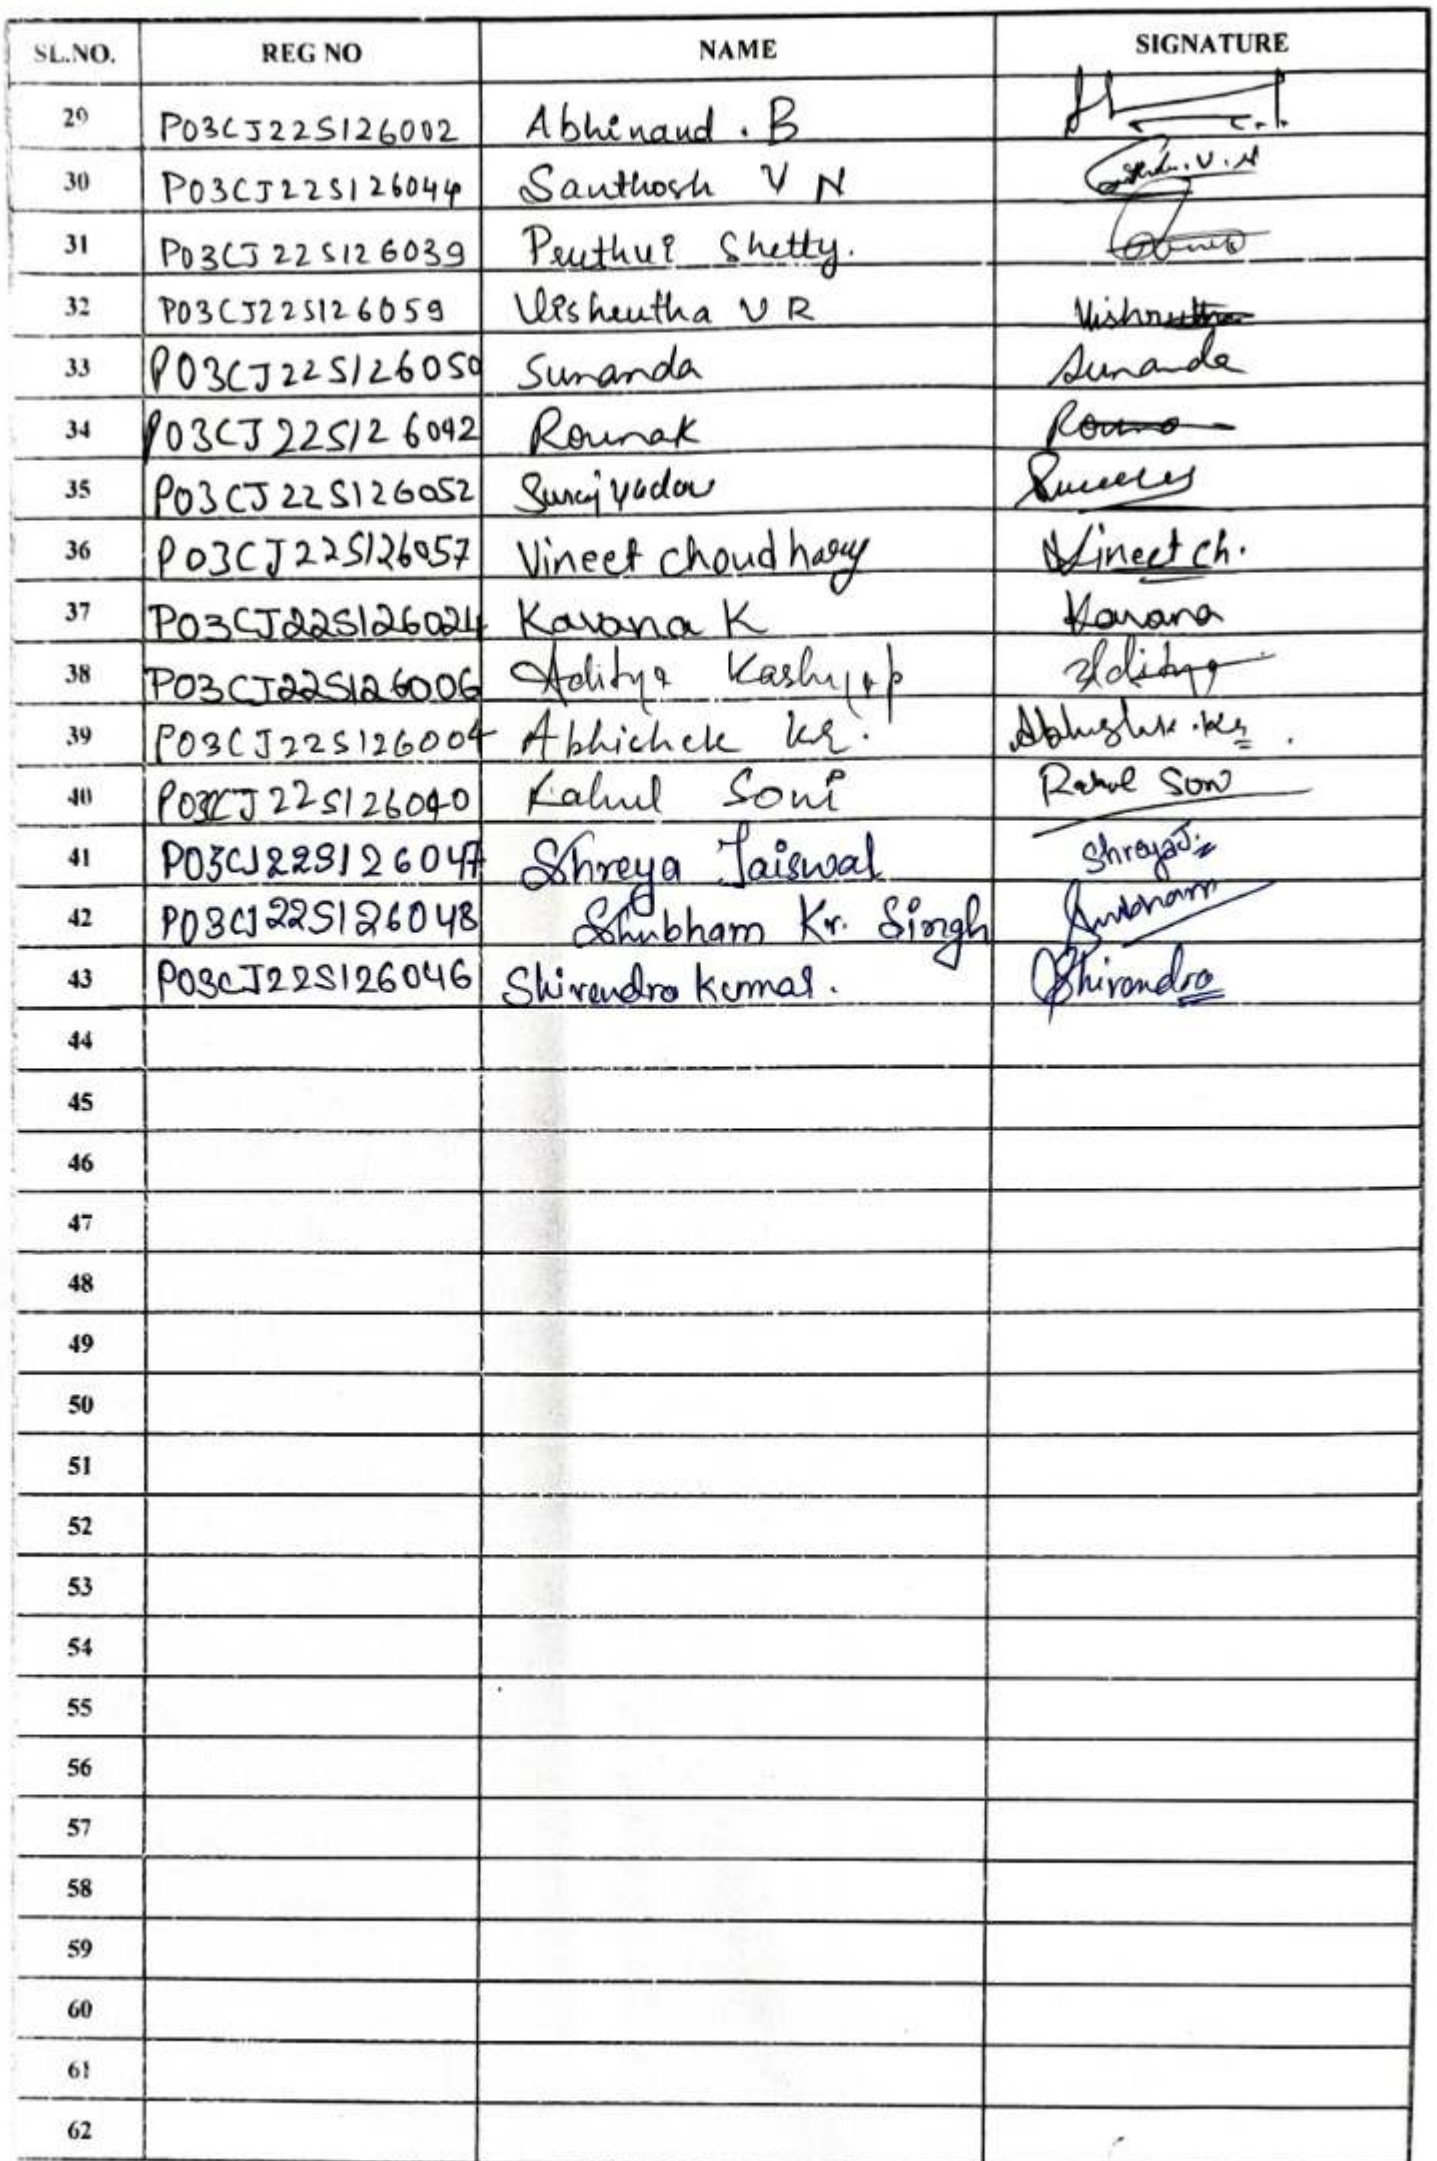 SL.NO. REG NO NAME SIGNATURE
29 P03CJ22S126002 Abhinand . B
30 P03CJ22S126044 Santhosh V N
31 P03CJ22S126039 Pruthvi Shetty.
32 P03CJ22S126059 Vishrutha V R Vishrutha
33 P03CJ22S126050 Sunanda Sunanda
34 P03CJ22S126042 Rounak
35 P03CJ22S126052 Suraj Yadav
36 P03CJ22S126057 Vineet choudhary Vineet ch.
37 P03CJ22S126024 Kavana K Kavana
38 P03CJ22S126006 Aditya Kashyap Aditya
39 P03CJ22S126004 Abhishek Kr. Abhishek .Kr .
40 P03CJ22S126040 Rahul Soni Rahul Soni
41 P03CJ22S126047 Shreya Jaiswal Shreya J.
42 P03CJ22S126048 Shubham Kr. Singh Shubham
43 P03CJ22S126046 Shirendra Kumar. Shirendra
44
45
46
47
48
49
50
51
52
53
54
55
56
57
58
59
60
61
62